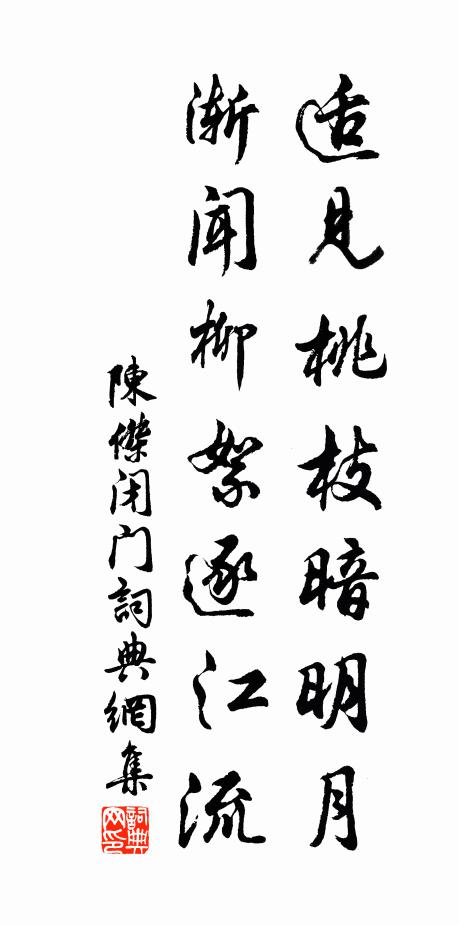 适見桃枝暗明月
漸聞柳絮逐江流
陳傑闭门詞典網集
詞典
网印